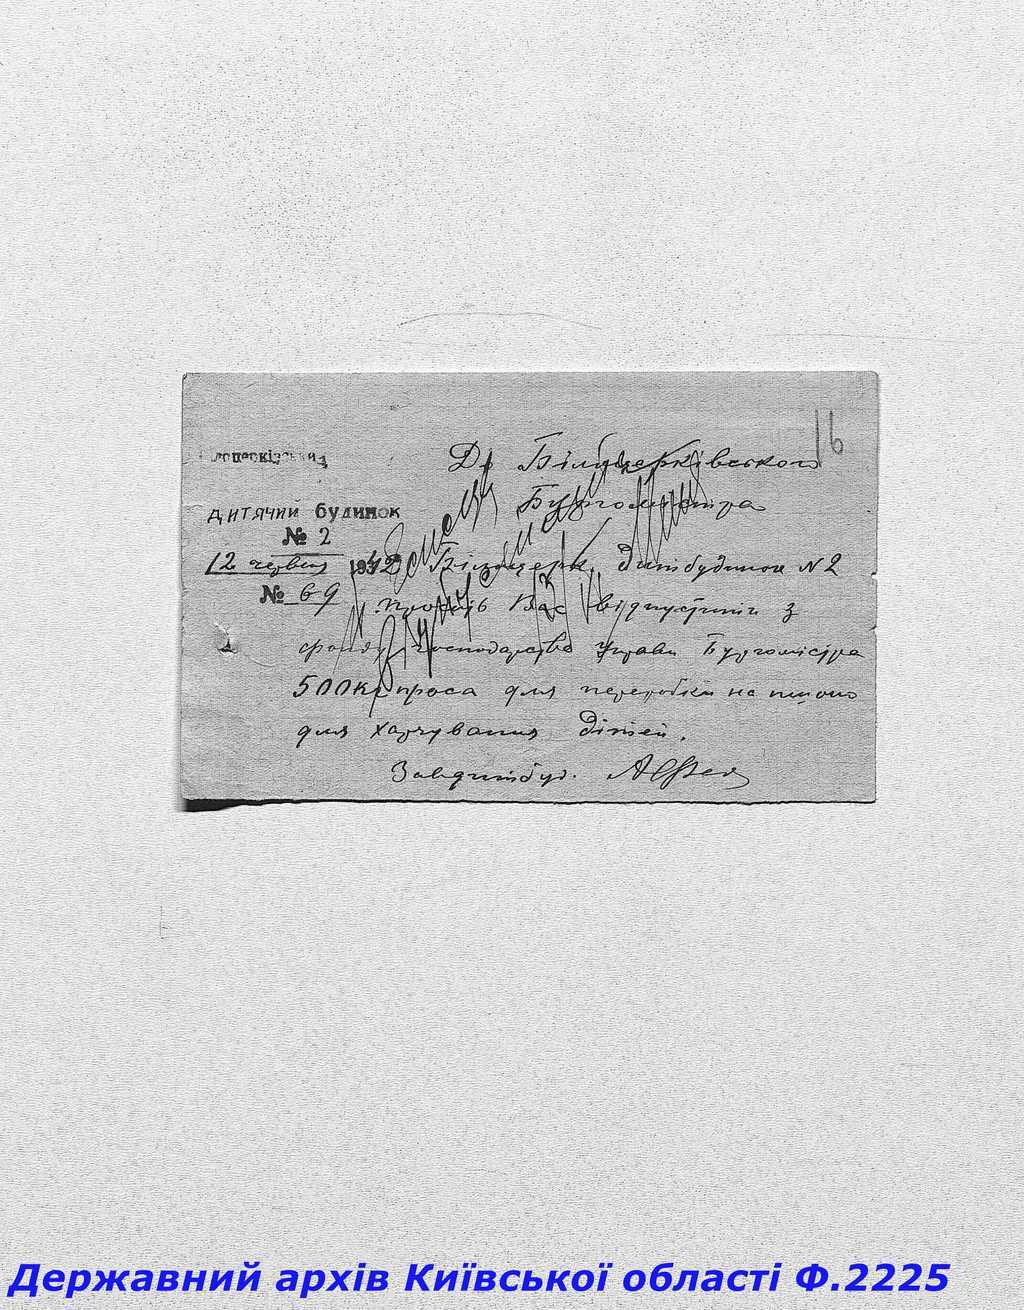 16
До Білоцерківського
Бургомістра
дитячий будинок
№ 2
12 червня 1942
№ 69
Білоцерк. дитбудинок N2
просить Вас відпустити з
фонду господарства Управи Бургомістра
500 кг проса для переробки на пшоно
для харчування дітей.
Завдитбуд.
Державний архів Київської області Ф.2225